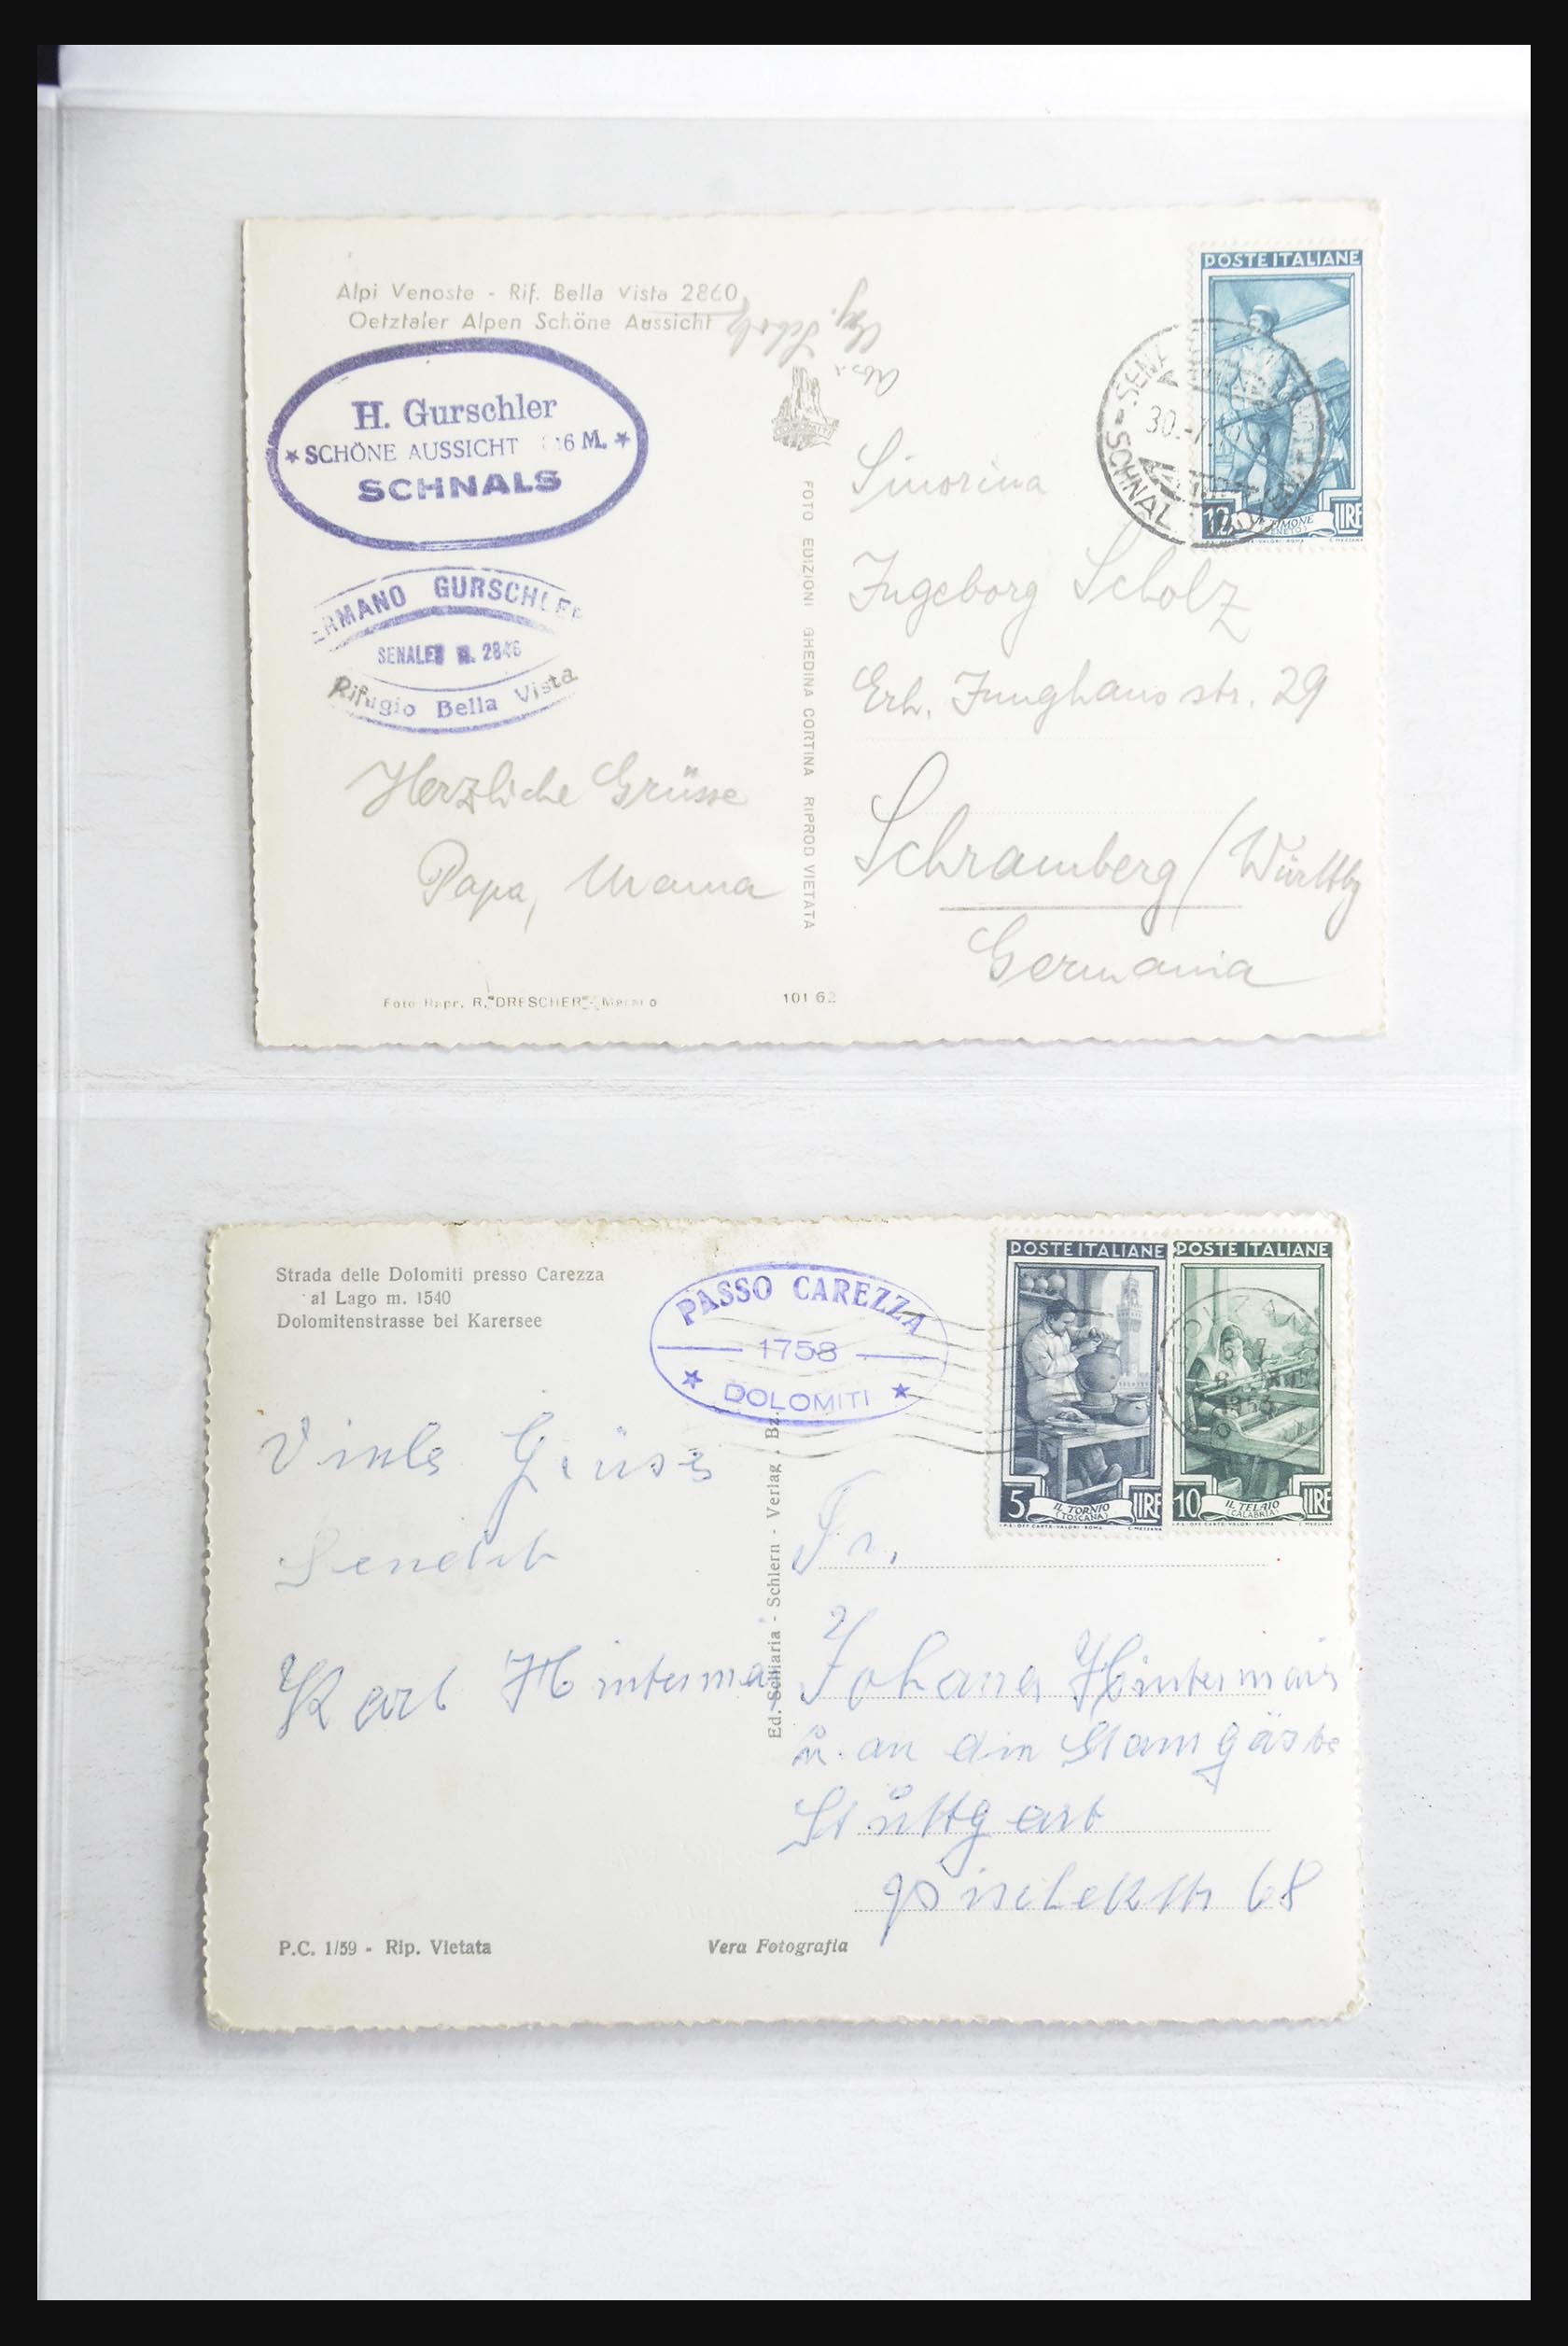 Alpi Venoste - Rif. Bella Vista 2860
Oetztaler Alpen Schöne Aussicht
H. Gurschler
★ SCHÖNE AUSSICHT 6 M. ★
SCHNALS
ERMANO GURSCHLER
SENALES 2846
Rifugio Bella Vista
Herzliche Grüsse
Papa, Mama
Foto Repr. R. "DRESCHER" - Merano
101 62
FOTO EDIZIONI GHEDINA CORTINA RIPROD VIETATA
Abs.:
Scholz
POSTE ITALIANE
12 LIRE
SCHNAL
30.
Sinorina
Ingeborg Scholz
Erh. Junghansstr. 29
Schramberg / Württbg
Germania
Strada delle Dolomiti presso Carezza
al Lago m. 1540
Dolomitenstrasse bei Karersee
PASSO CAREZZA
1758
★ DOLOMITI ★
POSTE ITALIANE
5 IL TORNIO LIRE
(TOSCANA)
POSTE ITALIANE
10 IL TELAIO LIRE
(CALABRIA)
Viele Grüse
Sendet
Karl Hinterma
Ed. Sciliaria - Schlern - Verlag - Bz.
Fr.
Johana Hintermair
ŭ. an die Stamgäste
Stŭttgart
68
P.C. 1/59 - Rip. Vietata
Vera Fotografia